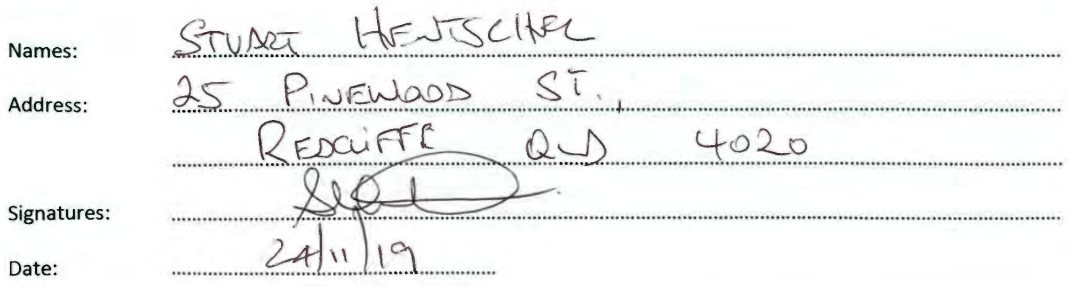 Names: STUART HENTSCHEL
Address: 25 PINEWOOD ST.,
REDCLIFFE QLD 4020
Signatures:
Date: 24/11/19